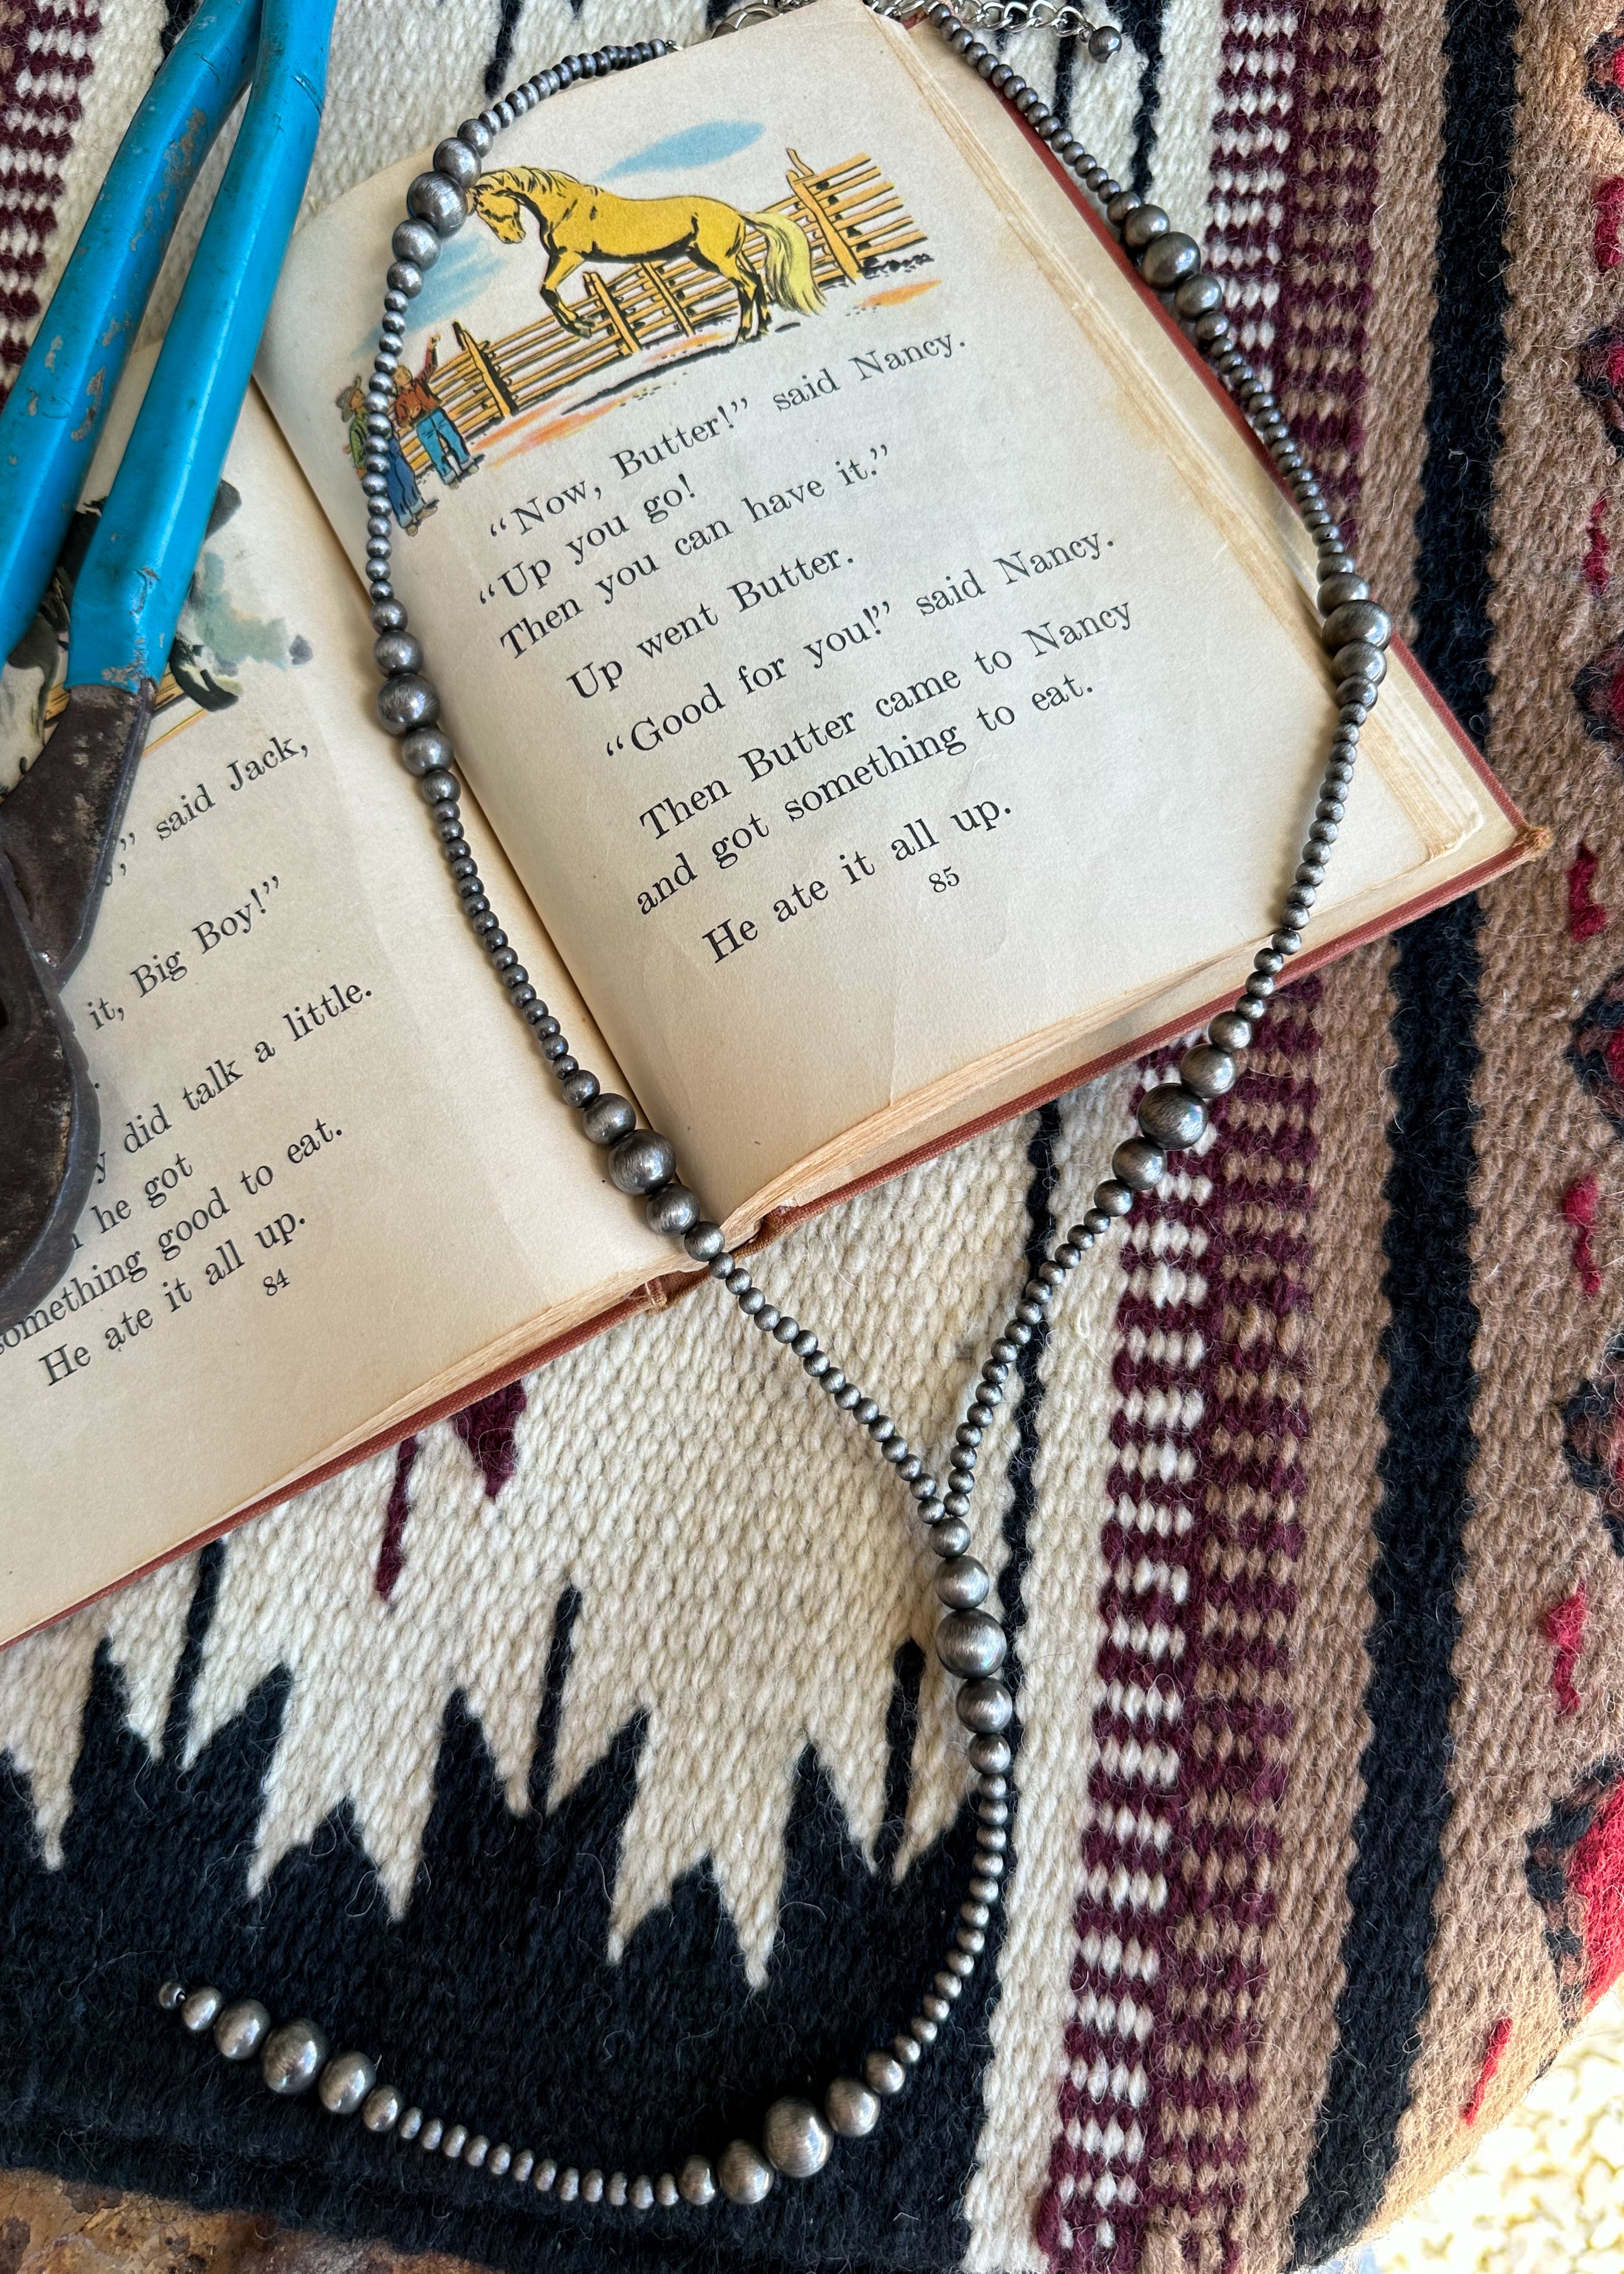 said Jack,
it, Big Boy!”
did talk a little.
he got
something good to eat.
He ate it all up.
84
“Now, Butter!” said Nancy.
“Up you go!
Then you can have it.”
Up went Butter.
“Good for you!” said Nancy.
Then Butter came to Nancy
and got something to eat.
He ate it all up.
85